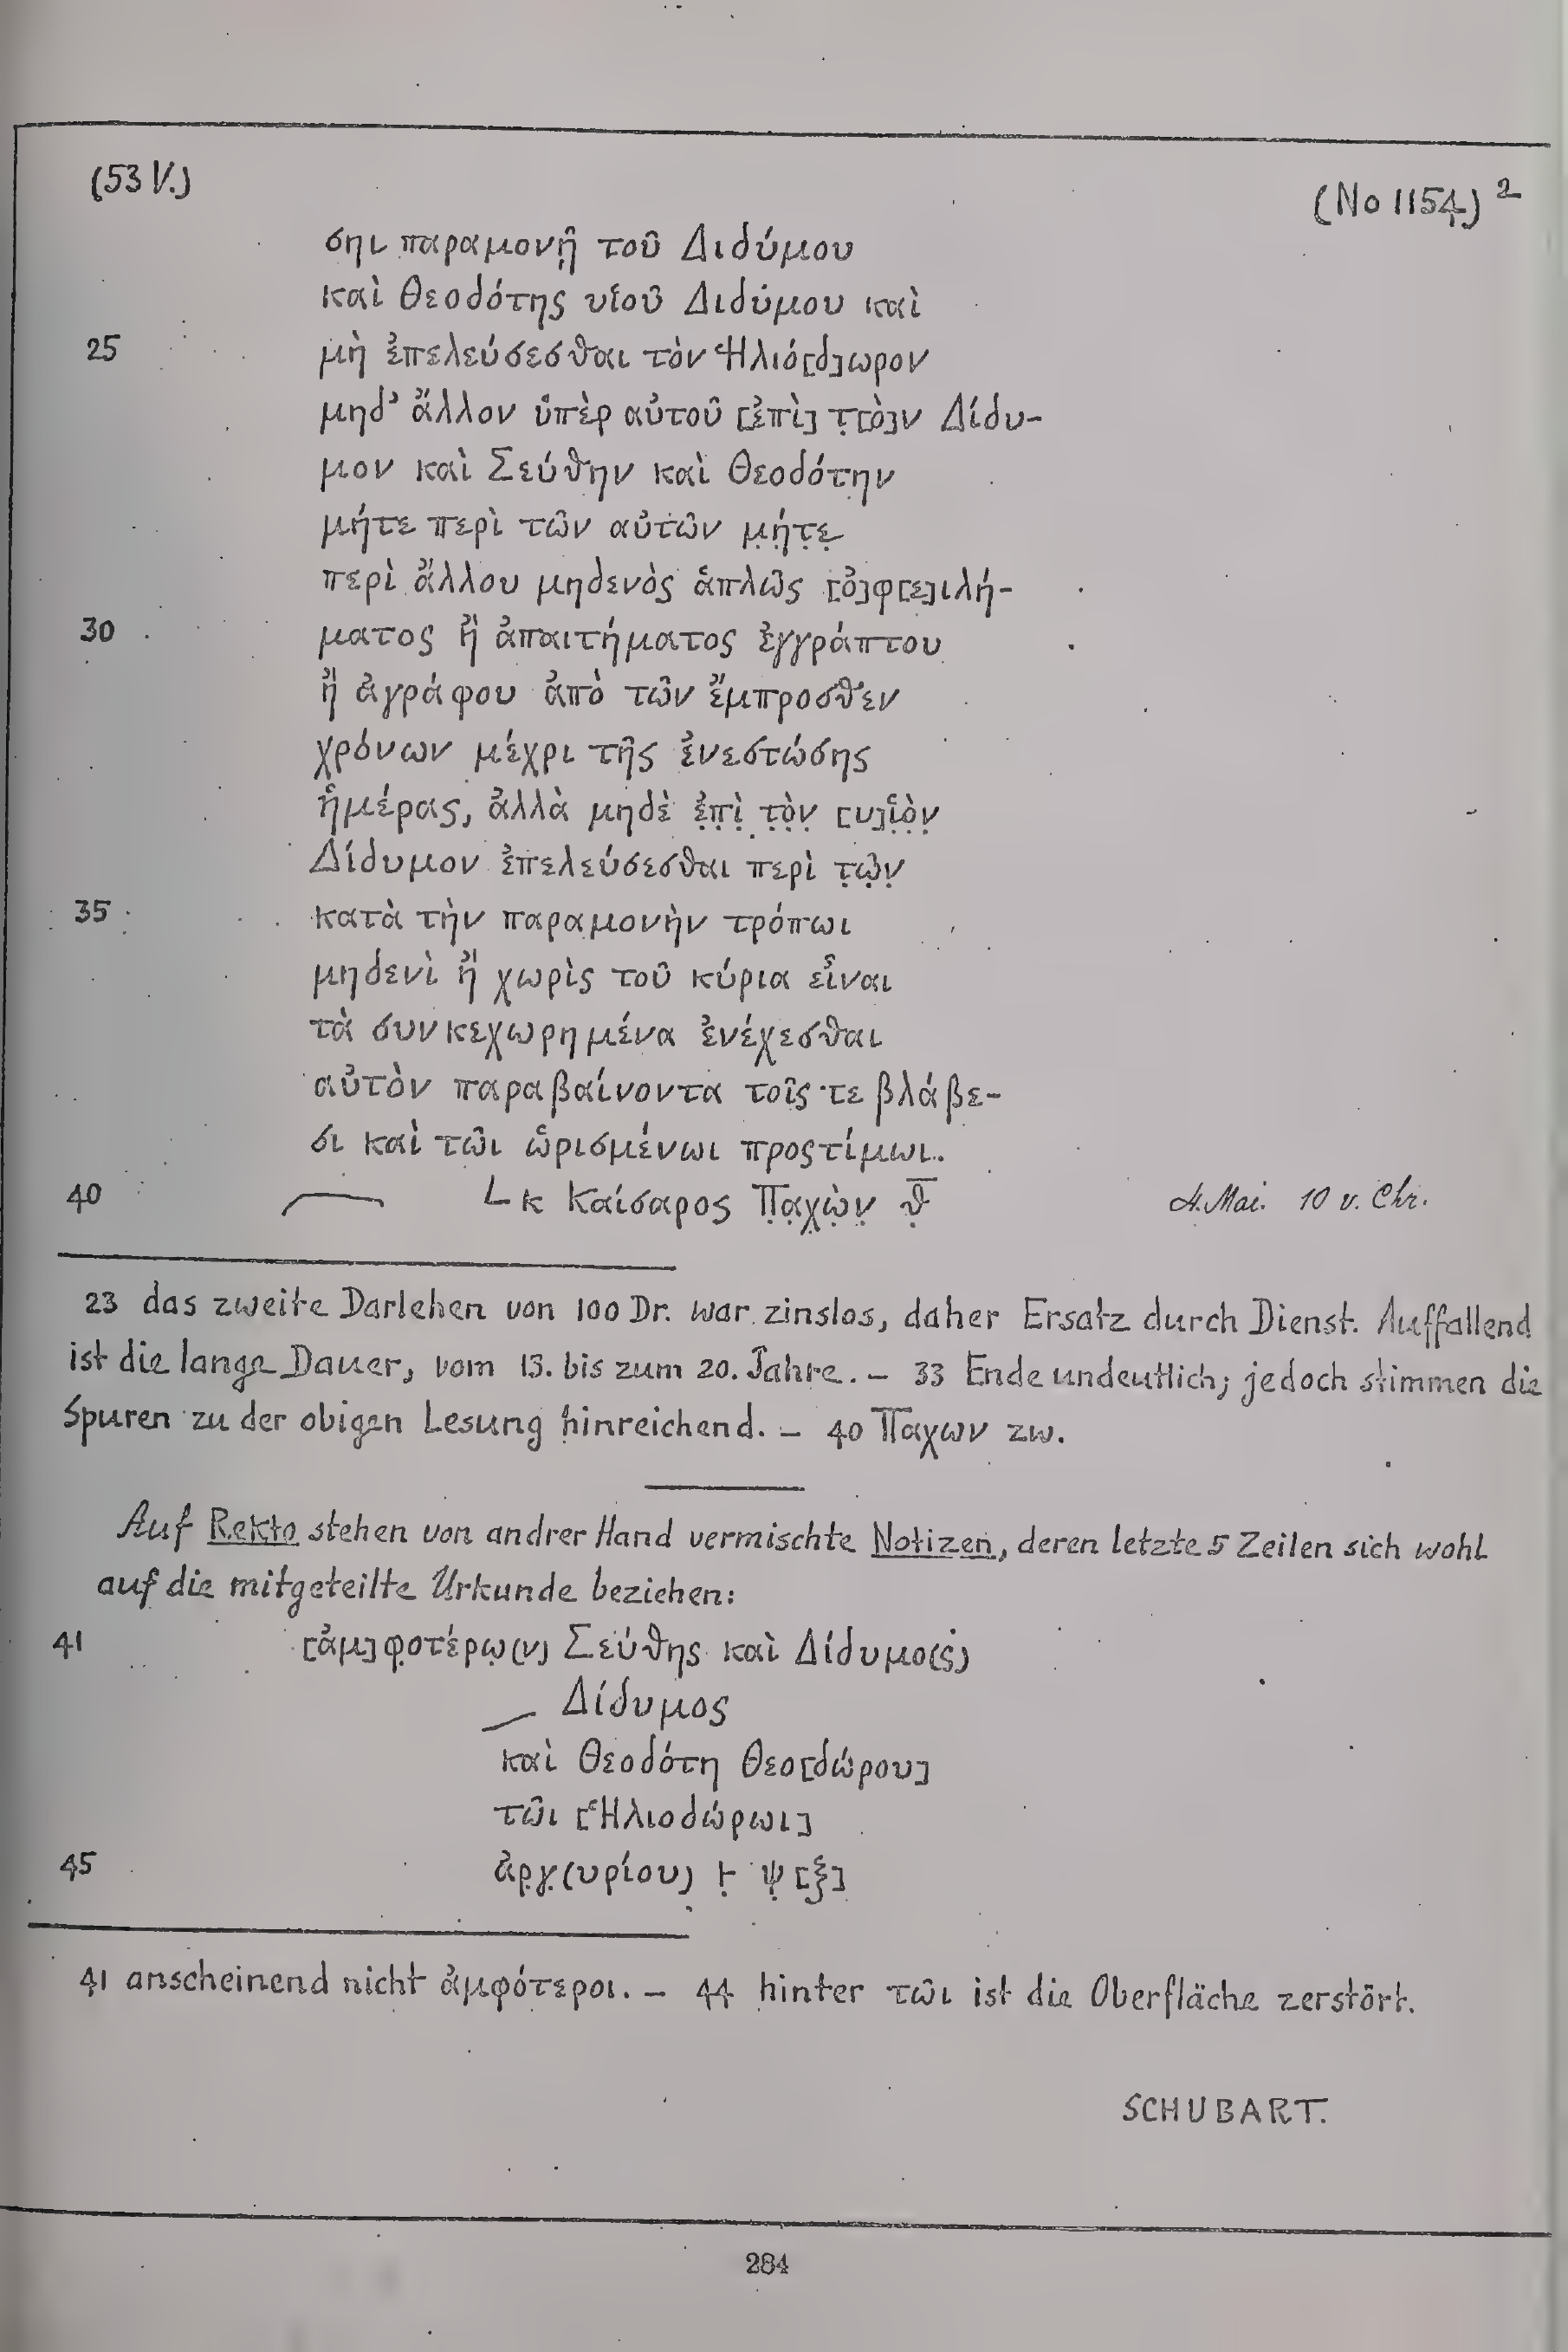 (53 V.)
(No 1154) 2
σηι παραμονῇ τοῦ Διδύμου
καὶ Θεοδότης υἱοῦ Διδύμου καὶ
25 μὴ ἐπελεύσεσθαι τὸν Ἡλιό[δ]ωρον
μηδ' ἄλλον ὑπὲρ αὐτοῦ [ἐπὶ] τ̣[ὸ]ν Δίδυ-
μον καὶ Σεύθην καὶ Θεοδότην
μήτε περὶ τῶν αὐτῶν μ̣ή̣τ̣ε̣
περὶ ἄλλου μηδενὸς ἁπλῶς [ὀ]φ[ε]ιλή-
30 ματος ἢ ἀπαιτήματος ἐγγράπτου
ἢ ἀγράφου ἀπὸ τῶν ἔμπροσθεν
χρόνων μέχρι τῆς ἐνεστώσης
ἡμέρας, ἀλλὰ μηδὲ ἐ̣π̣ὶ̣ τ̣ὸ̣ν̣ [υ]ἱ̣ὸ̣ν̣
Δίδυμον ἐπελεύσεσθαι περὶ τ̣ῶ̣ν̣
35 κατὰ τὴν παραμονὴν τρόπωι
μηδενὶ ἢ χωρὶς τοῦ κύρια εἶναι
τὰ συνκεχωρημένα ἐνέχεσθαι
αὐτὸν παραβαίνοντα τοῖς τε βλάβε-
σι καὶ τῶι ὡρισμένωι προςτίμωι.
40 L κ Καίσαρος Π̣α̣χ̣ὼ̣ν̣ θ̣̅ 4. Mai. 10 v. Chr.
23 das zweite Darlehen von 100 Dr. war zinslos, daher Ersatz durch Dienst. Auffallend
ist die lange Dauer, vom 13. bis zum 20. Jahre. – 33 Ende undeutlich; jedoch stimmen die
Spuren zu der obigen Lesung hinreichend. – 40 Παχων zw.
Auf Rekto stehen von andrer Hand vermischte Notizen, deren letzte 5 Zeilen sich wohl
auf die mitgeteilte Urkunde beziehen:
41 [ἀμ]φ̣οτέρω̣(ν) Σεύθης καὶ Δίδυμο(ς)
Δίδυμος
καὶ Θεοδότη Θεο[δώρου]
τῶι [Ἡλιοδώρωι]
45 ἀρ̣γ̣(υρίου) ⊦̣ ψ̣ [ξ]
41 anscheinend nicht ἀμφότεροι. – 44 hinter τῶι ist die Oberfläche zerstört.
SCHUBART.
284